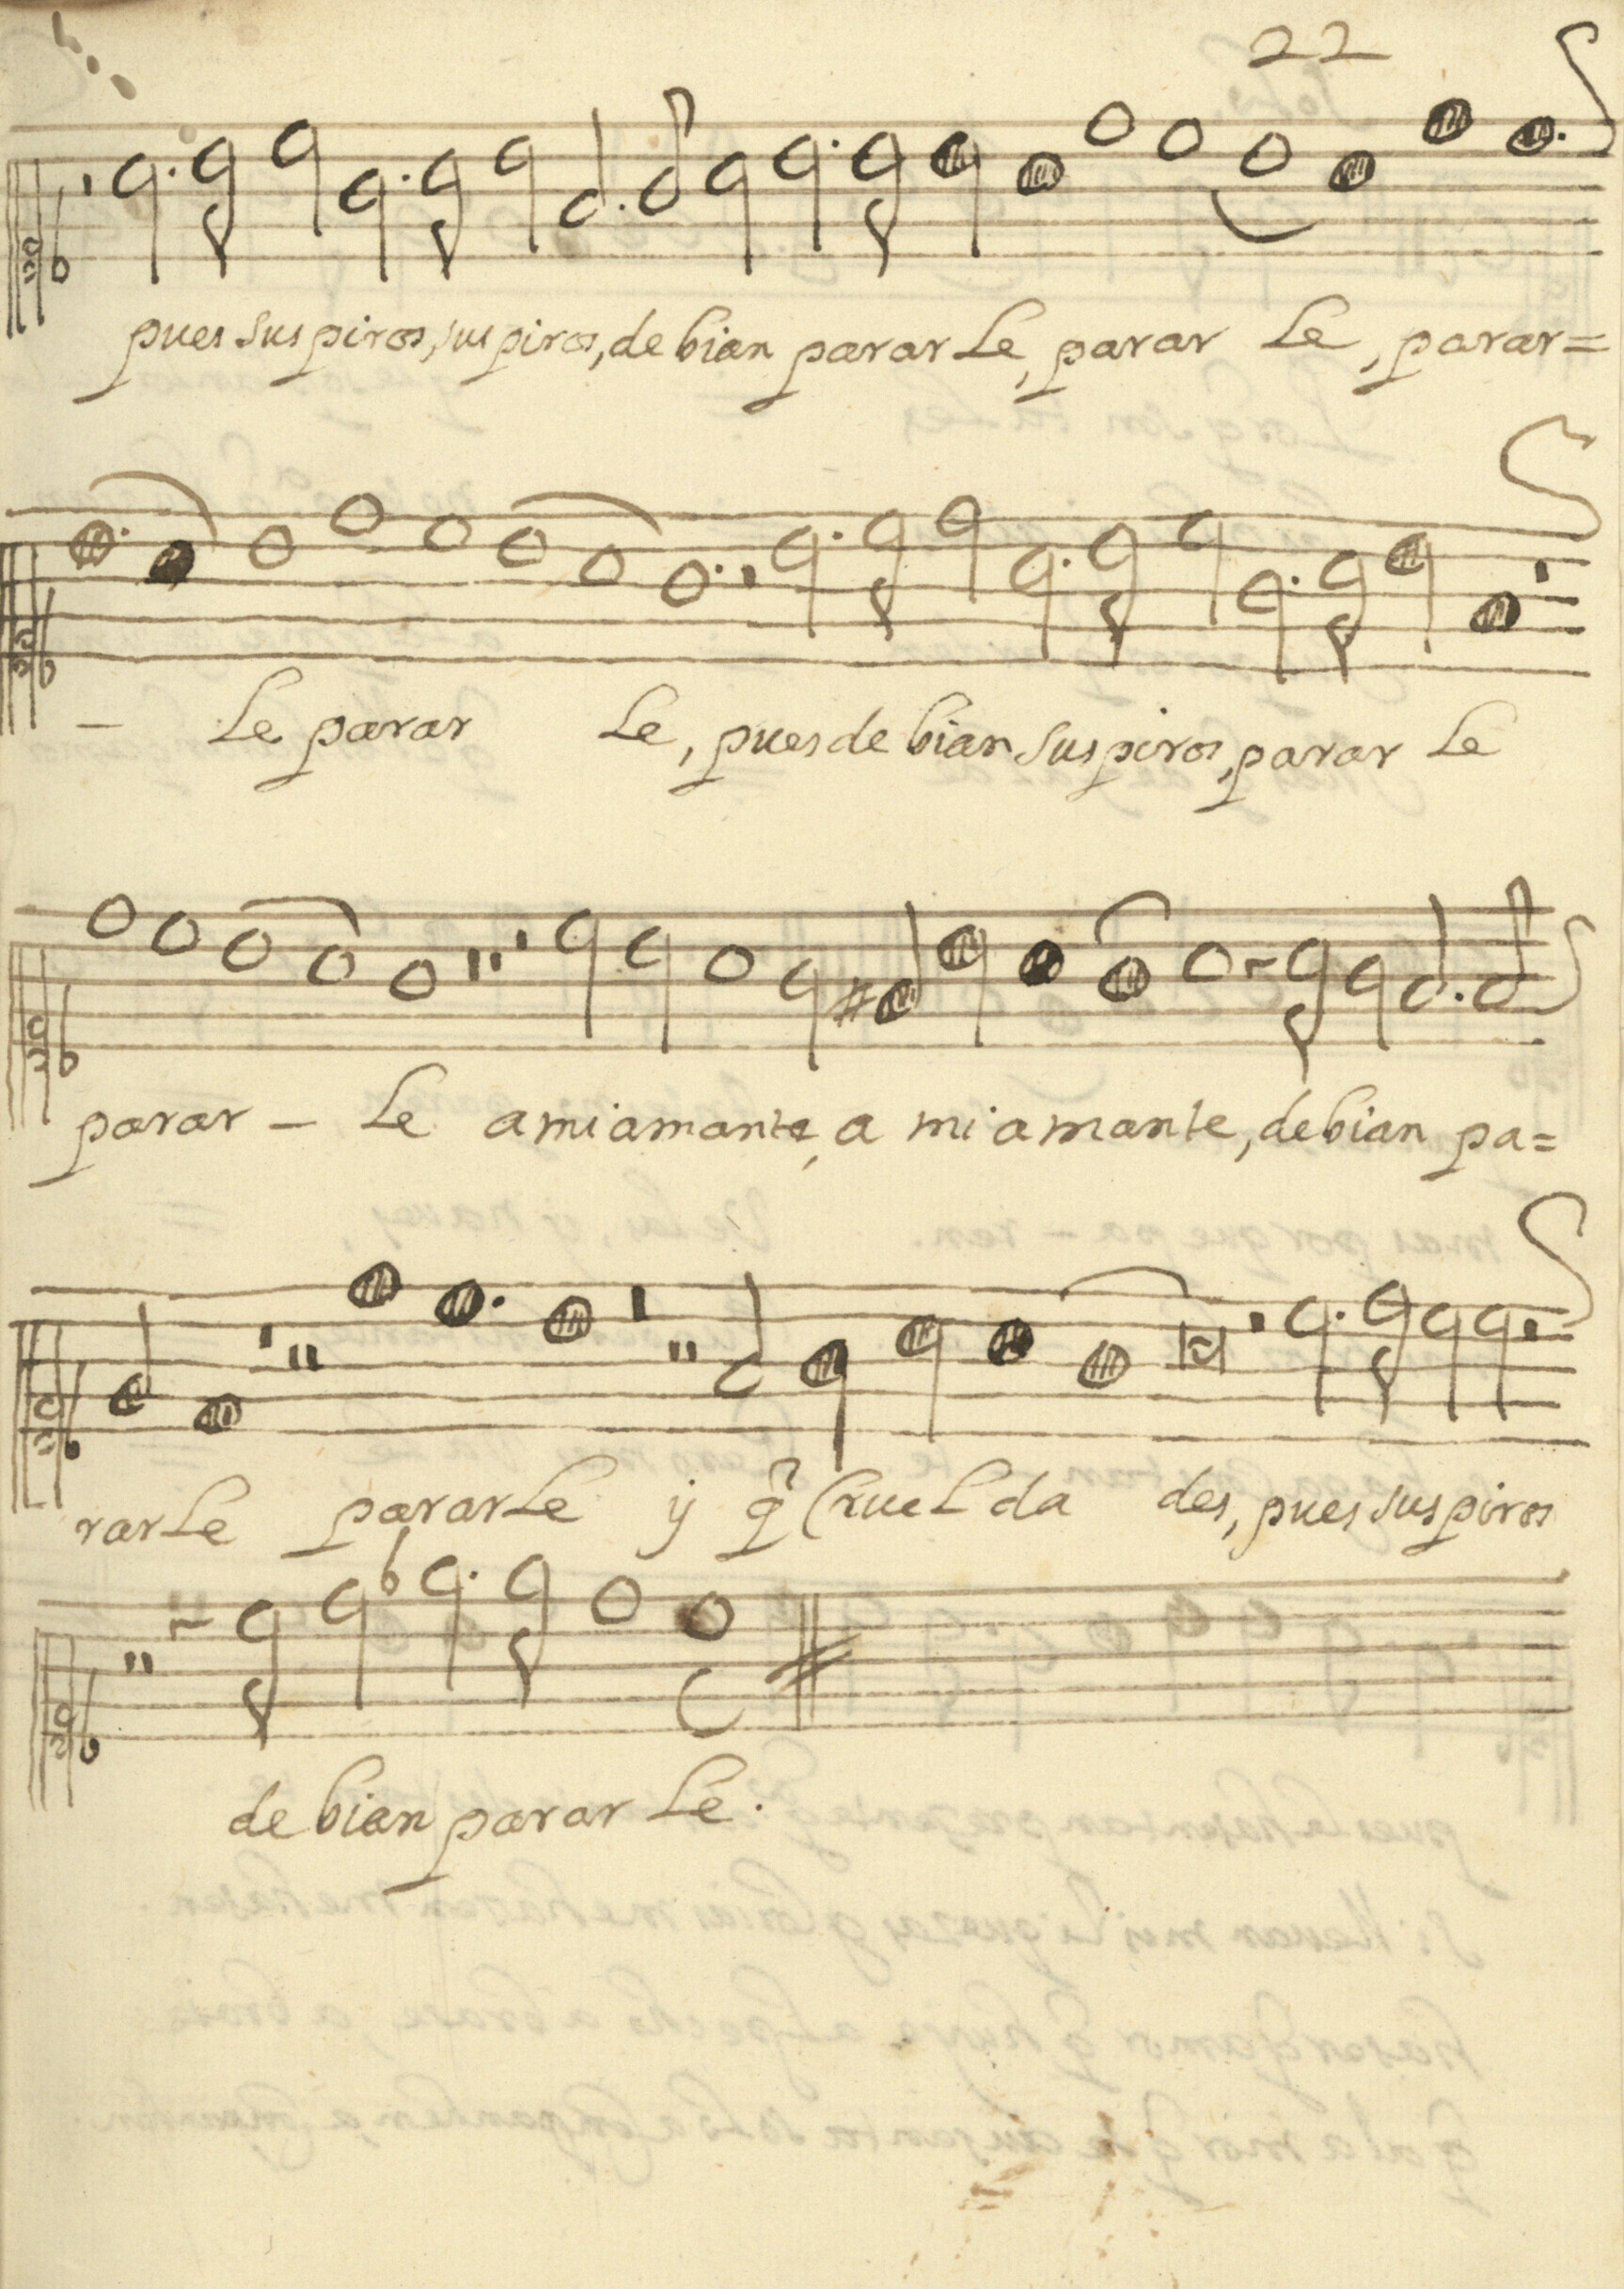 22
pues suspiros, suspiros, debian pararle, parar le, parar=
- le parar le, pues debian suspiros, parar le
parar - le a mi amante, a mi amante, debian pa=
rarle pararle y q̃ Crueldades, pues suspiros
debian parar le.